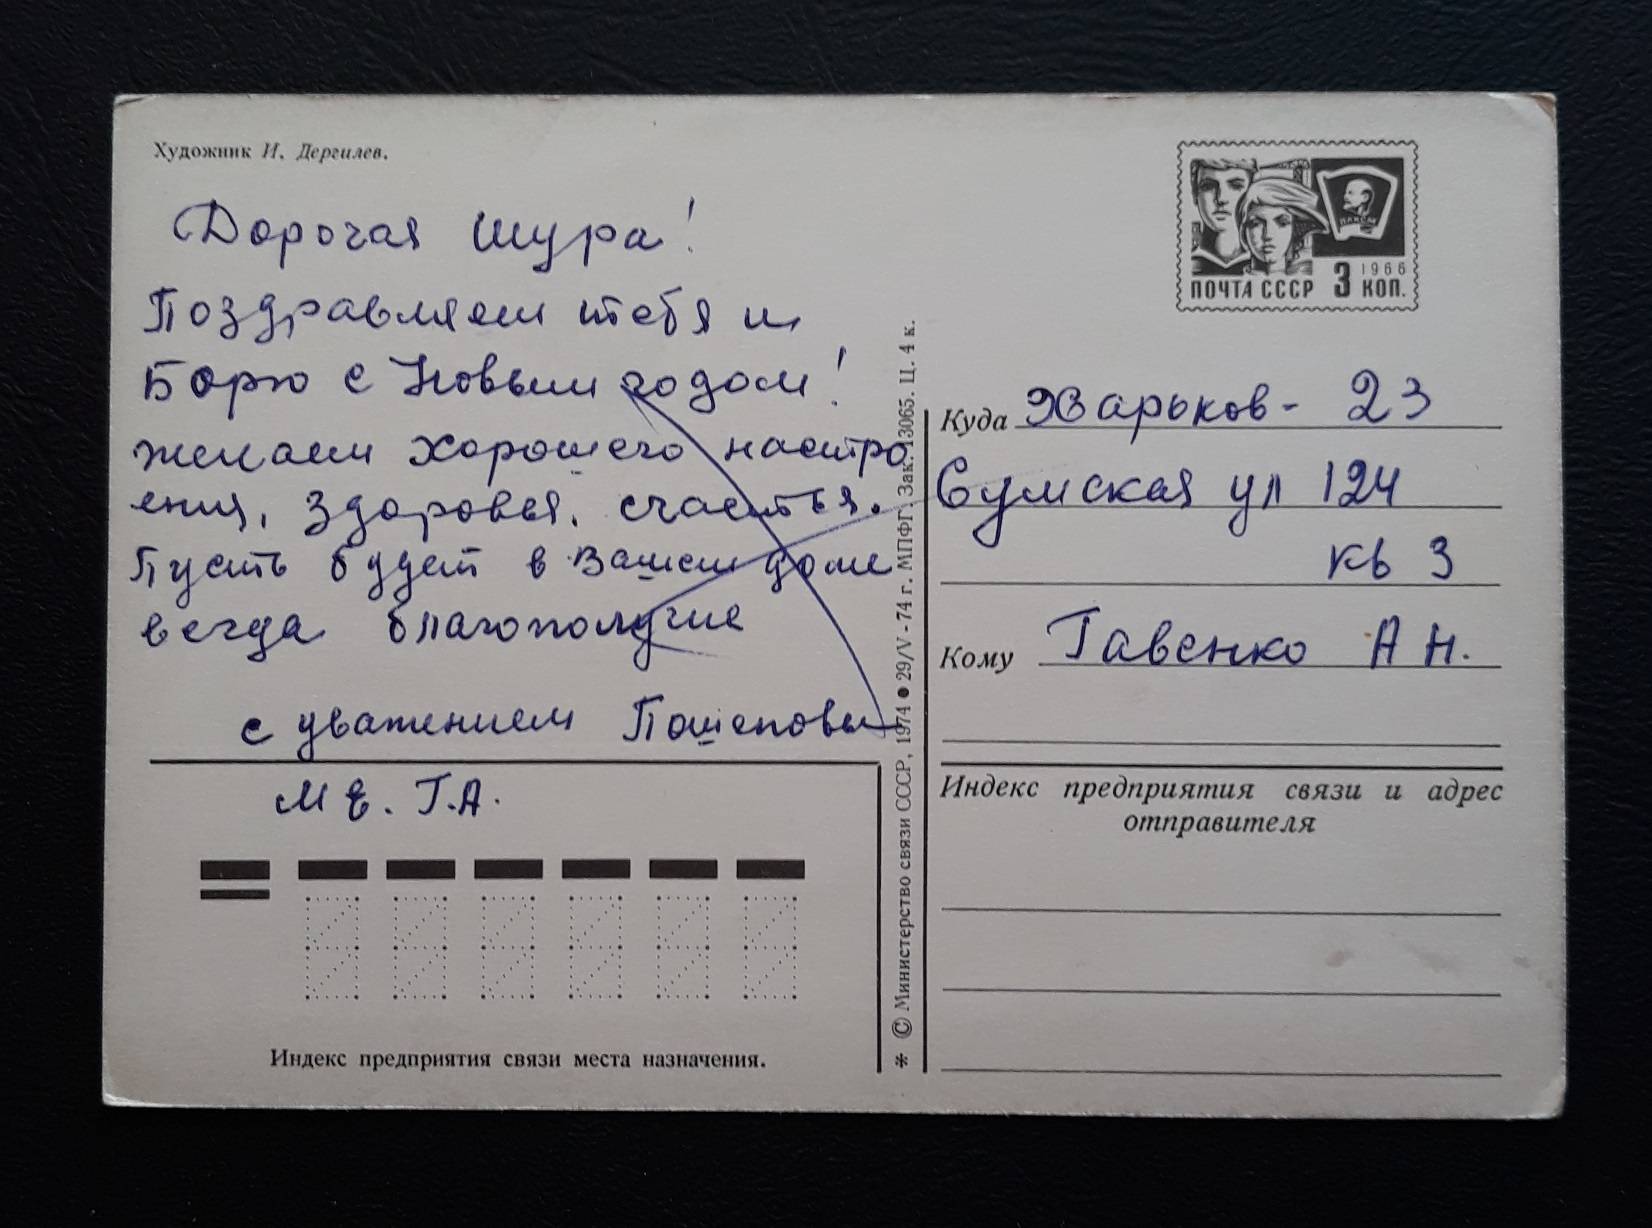 Художник И. Дергилев.
Дорогая Шура!
Поздравляем тебя и
Борю с Новым годом!
желаем хорошего настро
ения, здоровья, счастья.
Пусть будет в Вашем доме
всегда благополучие
с уважением Пошеповы
М Е. Г.А.
Индекс предприятия связи места назначения.
✻ © Министерство связи СССР, 1974 ● 29/V-74 г. МПФГ. Зак. 13065. Ц. 4 к.
ВЛКСМ
1966
ПОЧТА СССР 3 КОП.
Куда Харьков - 23
Сумская ул 124
кв 3
Кому Гавенко А Н.
Индекс предприятия связи и адрес
отправителя